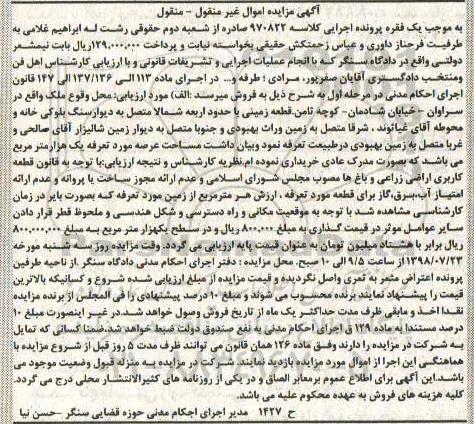 آگهی مزایده اموال غیر منقول - منقول
به موجب یک فقره پرونده اجرایی کلاسه ۹۷۰۸۲۲ صادره از شعبه دوم حقوقی رشت له ابراهیم غلامی به
طرفیت فرحناز داوری و عباس زحمتکش حقیقی بخواسته نیابت و پرداخت ۱۲۹,۰۰۰,۰۰۰ ریال بابت نیمعشر
دولتی واقع در دادگاه سنگر که با انجام عملیات اجرایی و تشریفات قانونی و با ارزیابی کارشناس اهل فن
ومنتخب دادگستری آقایان صفرپور، مرادی ؛ طرفه و... در اجرای ماده ۱۱۳ الی ۱۳۷/۱۳۶ الی ۱۴۷ قانون
اجرای احکام مدنی در مرحله اول به شرح ذیل به فروش میرسند :الف) مورد ارزیابی: محل وقوع ملک واقع در
سراوان -خیابان شادمان- کوچه ثامن.قطعه زمینی با حدود اربعه شمالا متصل به دیوارسنگ بلوکی خانه و
محوطه آقای غیاثوند ، شرقا متصل به زمین وراث بهبودی و جنوبا متصل به دیوار زمین شالیزار آقای صالحی و
غربا متصل به زمین بهبودی درطبیعت تعرفه نمود وبیان داشت مساحت عرصه مورد تعرفه یک هزارمتر مربع
می باشد که بصورت مدرک عادی خریداری نموده ام.نظریه کارشناس و نتیجه ارزیابی:با توجه به قانون قطعه
کاربری اراضی زراعی و باغ ها مصوب مجلس شورای اسلامی و عدم ارائه مجوز ساخت یا پروانه و عدم ارائه
امتیاز آب،برق،گاز برای قطعه مورد تعرفه ، ارزش هر مترمربع از زمین مورد تعرفه که بصورت بایر در زمان
کارشناسی مشاهده شد با توجه به موقعیت مکانی و راه دسترسی و شکل هندسی و ملحوظ قطر قرار دادن
سایر عوامل موثر در قیمت گذاری به مبلغ ۸۰۰,۰۰۰ ریال و در سطح یکهزار متر مربع به مبلغ ۸۰۰,۰۰۰,۰۰۰
ریال برابر با هشتاد میلیون تومان به عنوان قیمت پایه ارزیابی می گردد. وقت مزایده روز سه شنبه مورخه
۱۳۹۸/۰۷/۲۳ از ساعت ۹/۵ الی ۱۰ صبح. محل مزایده : دفتر اجرای احکام مدنی دادگاه سنگر .از ناحیه طرفین
پرونده اعتراض مثر به ثمری واصل نگردیده و قیمت مزایده از مبلغ ارزیابی شده شروع و کسانیکه بالاترین
قیمت را پیشنهاد نمایند برنده محسوب می شوند و مبلغ ۱۰ درصد پیشنهادی را فی المجلس از برنده مزایده
نقدا اخذ و مابقی ظرف مدت حداکثر یک ماه از تاریخ فروش وصول خواهد شد.در غیر اینصورت مبلغ ۱۰
درصد مستندا به ماده ۱۲۹ ق اجرای احکام مدنی به نفع صندوق دولت ضبط خواهد شد.ضمنا کسانی که تمایل
به شرکت در مزایده را دارند وفق ماده ۱۲۶ همان قانون می توانند ظرف مدت ۵ روز قبل از شروع مزایده با
هماهنگی این اجرا از اموال مورد مزایده بازدید نمایند. شرکت در مزایده به منزله قبول وضعیت موجود می
باشد.این آگهی برای اطلاع عموم برمعابر الصاق و در یکی از روزنامه های کثیرالانتشار محلی درج می گردد.
کلیه هزینه های فروش به عهده محکوم علیه می باشد.
ح ۱۴۲۷ مدیر اجرای احکام مدنی حوزه قضایی سنگر -حسن نیا